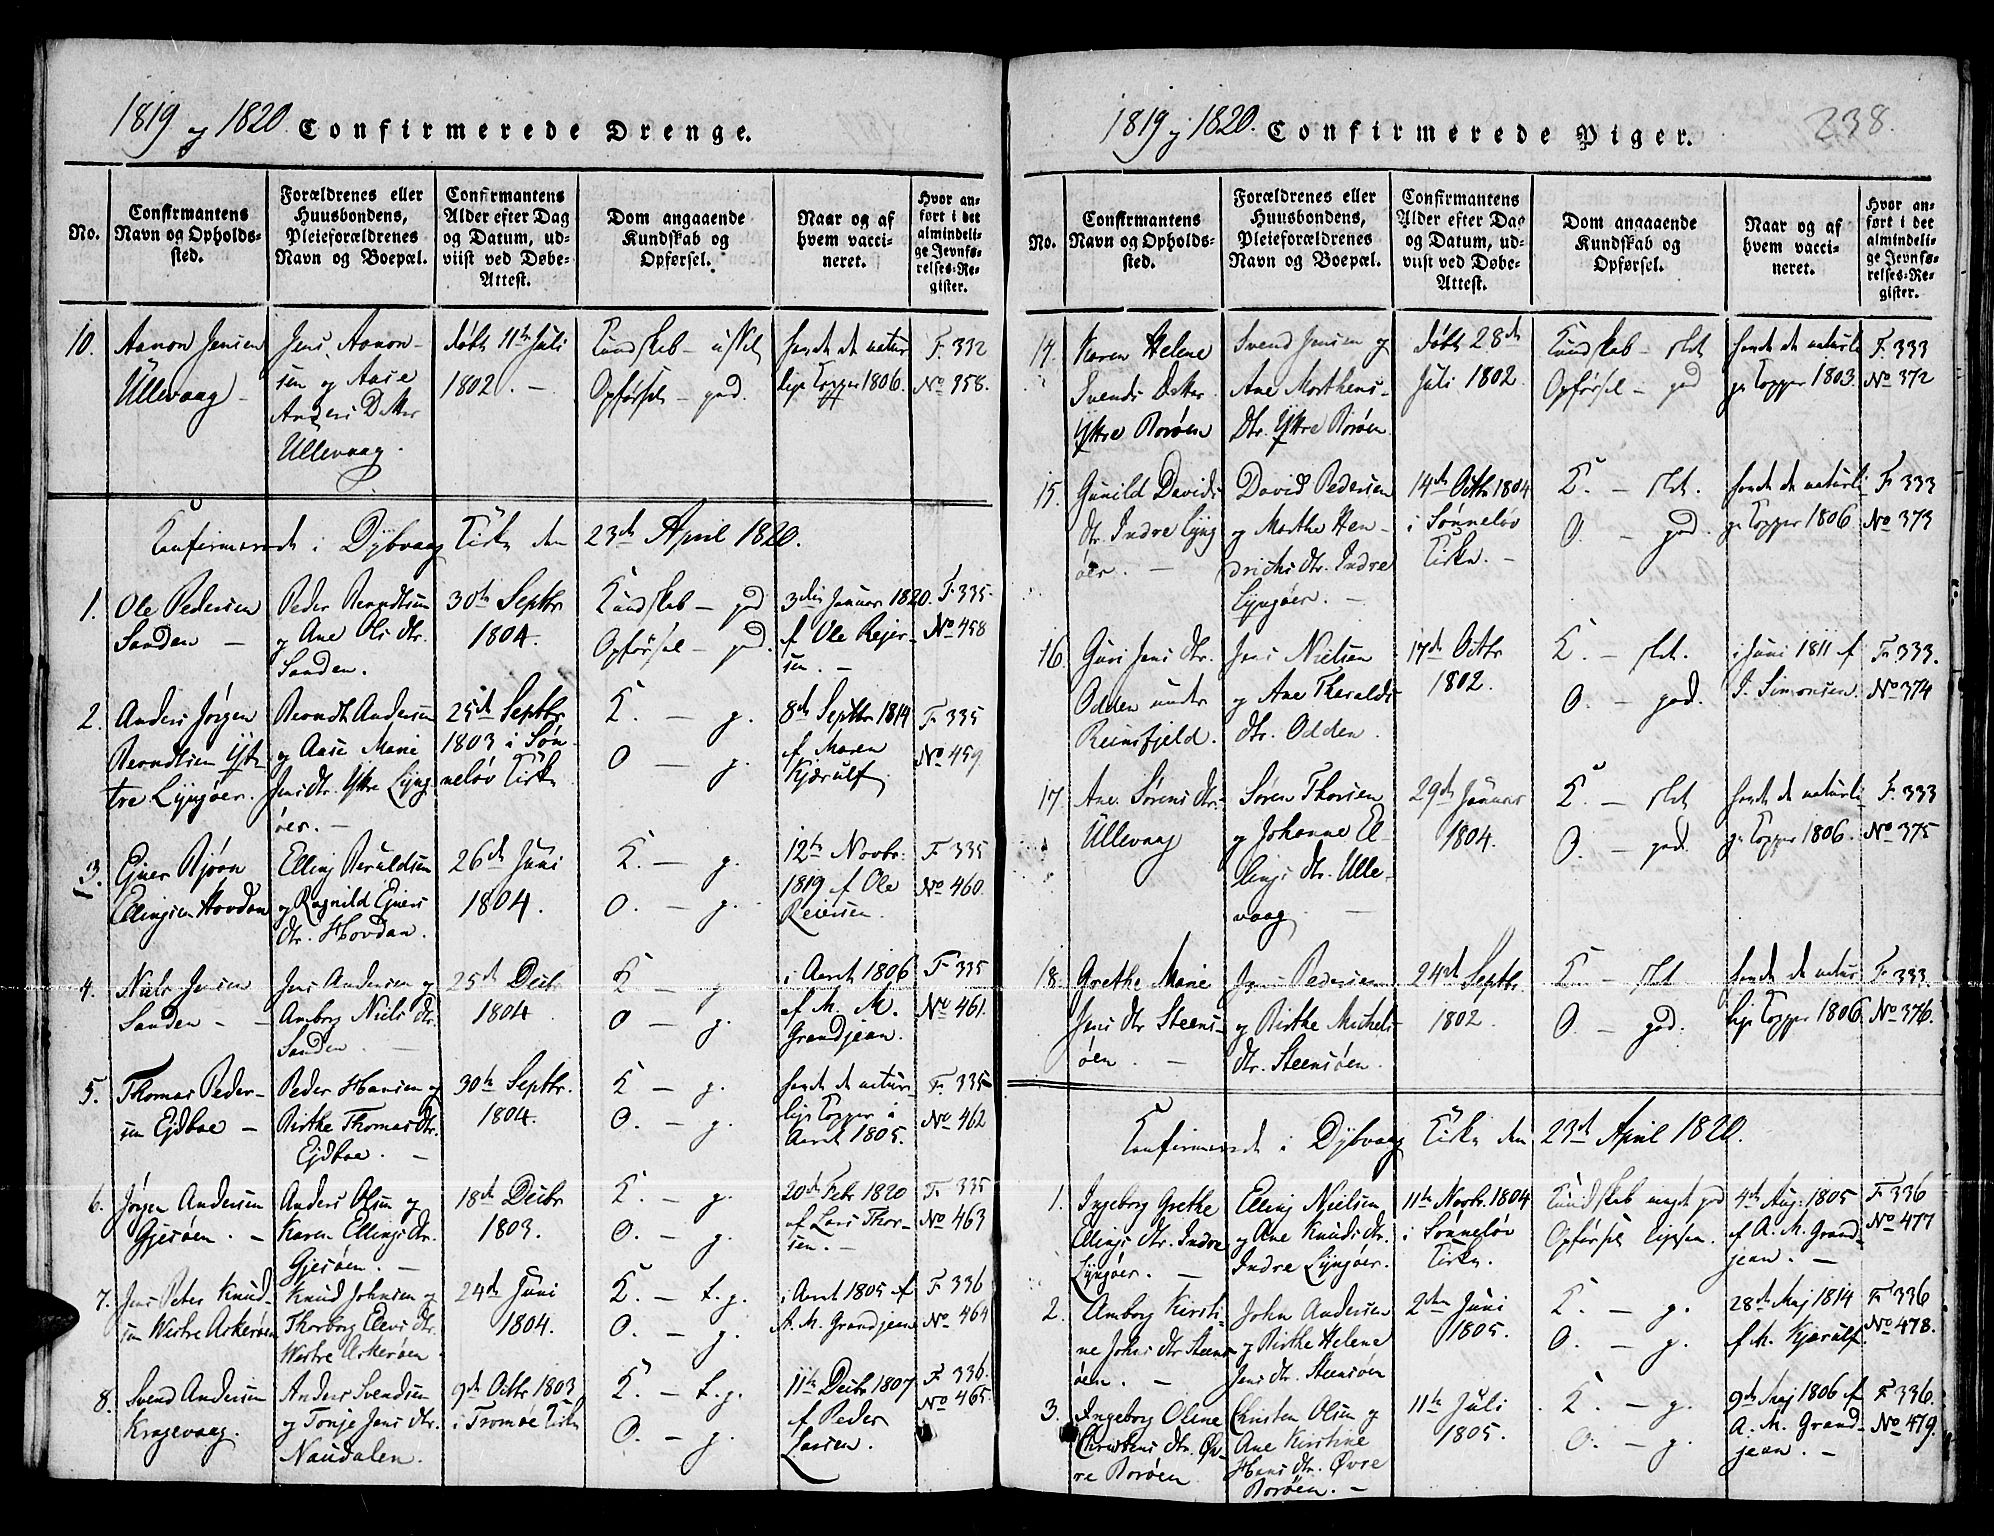 1819 og 1820. Confirmerede Drenge.
No.
Confirmantens Navn og Opholdssted.
Forældrenes eller Huusbondens, Pleieforældrenes Navn og Boepæl.
Confirmantens Alder efter Dag og Datum, udviist ved Døbe-Attest.
Dom angaaende Kundskab og Opførsel.
Naar og af hvem vaccineret.
Hvor anført i det almindelige Jevnførelses-Register.
10. Aanon Jensen Jens Aanon- døbt 11te Juli Kundskab - havde de natur F. 332
Ullevaag sen og Aase 1802. - Opførsel - god. lige Kopper 1806. No 358.
Anders Dtter
Ullevaag.
Confirmerede i Dybvaag Kirke den 23de April 1820.
1. Ole Pedersen Peder Berndtsen 30te Septbr Kundskab - god 3die Januar 1820. F. 335
Sanden - og Ane Ols dtr. 1804. Opførsel - god. f Ole Rejer- No 458
Sanden. sen. -
2. Anders Jørgen Berndt Andersen 25de Septbr K. - g. 8de Septbr 1814 F. 335
Berndtsen Yt- og Aase Marie 1803 i Søn- O - g. af Maren No 459
tre Lyngøer. Jens dtr. Yttre Lyng neløv Kirke Kjærulf
øer. -
3. Ejner Bjørn Elling Beruldsen 26de Juni K. - g. 12te Novbr. F. 335
Ellingsen Hovdan og Ragnild Ejners 1804. O. - g. 1819 f Ole No 460.
dtr. Hovdan. Reiersen.
4. Niels Jensen Jens Andersen og 25de Decbr K - g i Aaret 1806 F. 335
Sanden - Amborg Niels dtr. 1804 O - g. af A. M. No 461.
Sanden - Grandjean.
5. Thomas Peder- Peder Hansen og 30te Septbr. K - g. havde de natur- F. 335
sen Ejdboe - Birthe Thomas dtr. 1804. O. - g. lige Kopper i No 462
Ejdboe. - Aaret 1805.
6. Jørgen Andersen Anders Olsen og 18de Decbr K. - g. 20de Febr 1820 F. 335
Gjesøen. - Karen Ellings dtr. 1803. O. - g. af Lars Thor- No 463
Gjesøen. - sen. -
7. Jens Peter Knud- Knud Johnsen og 24de Juni K. - t.g. i Aaret 1805 f F. 336
sen Westre Askerøen Thorborg Elevs dtr. 1804. O. - g. A. M. Grandjean No 464
Westre Askerøen
8. Svend Andersen Anders Svendsen 9de Octbr 1803 K. - t.g. 11te Decbr 1807 F. 336.
Kragevaag. og Tonje Jens dtr. i Tromøe Kirke O. - g. f Peder No 465.
Naudalen. Larsen.
1819 og 1820. Confirmerede Piger. 238.
No.
Confirmantens Navn og Opholdssted.
Forældrenes eller Huusbondens, Pleieforældrenes Navn og Boepæl.
Confirmantens Alder efter Dag og Datum, udviist ved Døbe-Attest.
Dom angaaende Kundskab og Opførsel.
Naar og af hvem vaccineret.
Hvor anført i det almindelige Jevnførelses-Register.
14. Karen Helene Svend Jensen og døbt 28de Kundskab - slet havde de naturli F. 333
Svends Dtter Ane Morthens- Juli 1802. Opførsel - god ge Kopper 1803. No 372
Yttre Borøen Dtr. Yttre Borøen
15. Gunild Davids David Pedersen 14de Octbr 1804 K. - slet. havde de naturli F. 333
dtr. Indre Lyng og Marthe Hen- i Sønneløv O. - god. ge Kopper 1806. No 373
øer. - drichs dtr. Indre Kirke. -
Lyngøer. -
16. Guri Jens dtr. Jens Nielsen 17de Octbr K. - slet. i Juni 1811 f F. 333.
Odden under og Ane Theralds 1802. O. - god. J. Simonsen. No 374
Reinsfjeld. dtr. Odden.
17. Ane Sørens dtr. Søren Thorsen 29de Januar K. - slet havde de naturli F. 333
Ullevaag og Johanne El- 1804. O. - god. ge Kopper 1806. No 375
lings dtr. Ulle-
vaag. -
18. Grethe Marie Jens Pedersen 24de Septbr K - slet havde de natur F. 333.
Jens dtr Steens- og Birthe Michels- 1802. O. - god. lige Kopper 1806 No 376.
øen - dtr. Steensøen.
Confirmerede i Dybvaag Kirke den 23de April 1820.
1. Ingeborg Grethe Elling Nielsen 11te Novbr. 1804 Kundskab meget god 4de Aug. 1805 F. 336
Ellings dtr. Indre og Ane Knuds dtr. i Sønneløv Opførsel ligesaa. af A. M. Grand- No 477
Lyngøer. - Indre Lyngøer. Kirke. jean. -
2. Amborg Kirsti- John Andersen 2den Juni K. - g. 28de Maj 1814 F. 336
ne Johns dtr Steens- og Birthe Helene 1805. O. - g. f M. Kjærulf No 478.
øen. - Jens dtr. Steensøen
3. Ingeborg Oline Christen Olsen og 11te Juli K. - g. 9de Maj 1806 f F. 336.
Christens dtr. Øv- Ane Kirstine 1805. O. - g. A. M. Grand- No 479.
re Borøen Hans dtr. Øvre jean. -
Borøen. -